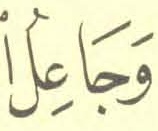 وَجَاعِلُ ا